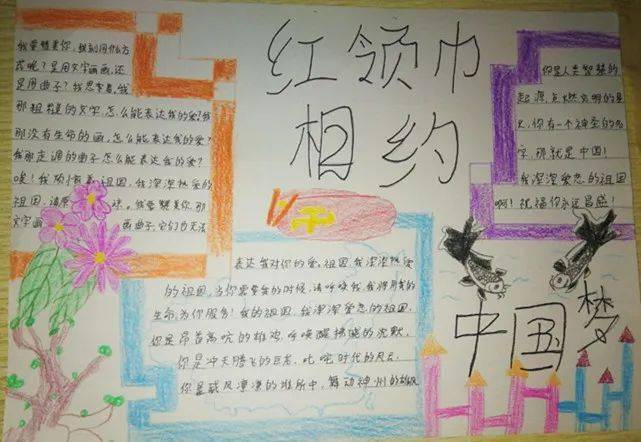 红领巾
相约
我要赞美你，我别用什么方
式呢？是用文字画画，还
是用曲子？我思索着。我
那粗糙的文字，怎么能表达我的爱？我
那没有生命的画，怎么能表达我的爱？
我那走调的曲子怎么能表达我的爱？
唉！我的祖国，我深深热爱的
祖国，请原 我要赞美你，那
文字画 画曲子，它们也无法
表达我对你的爱。祖国，我深深热爱
的祖国，当你需要我的时候，请呼唤我，我将用我的
生命为你服务！我的祖国，我深深爱恋的祖国，
你是昂首高吭的雄鸡，呼唤醒拂晓的沉默，
你是冲天腾飞的巨龙，叱咤时代的风云，
你是威风凛凛的雄狮中，舞动神州的雄风
你是人类智慧的
起源，点燃文明的星
火，你有一个神圣的名
字，那就是中国！
我深深爱恋的祖国
啊！祝福你永远昌盛！
中国梦